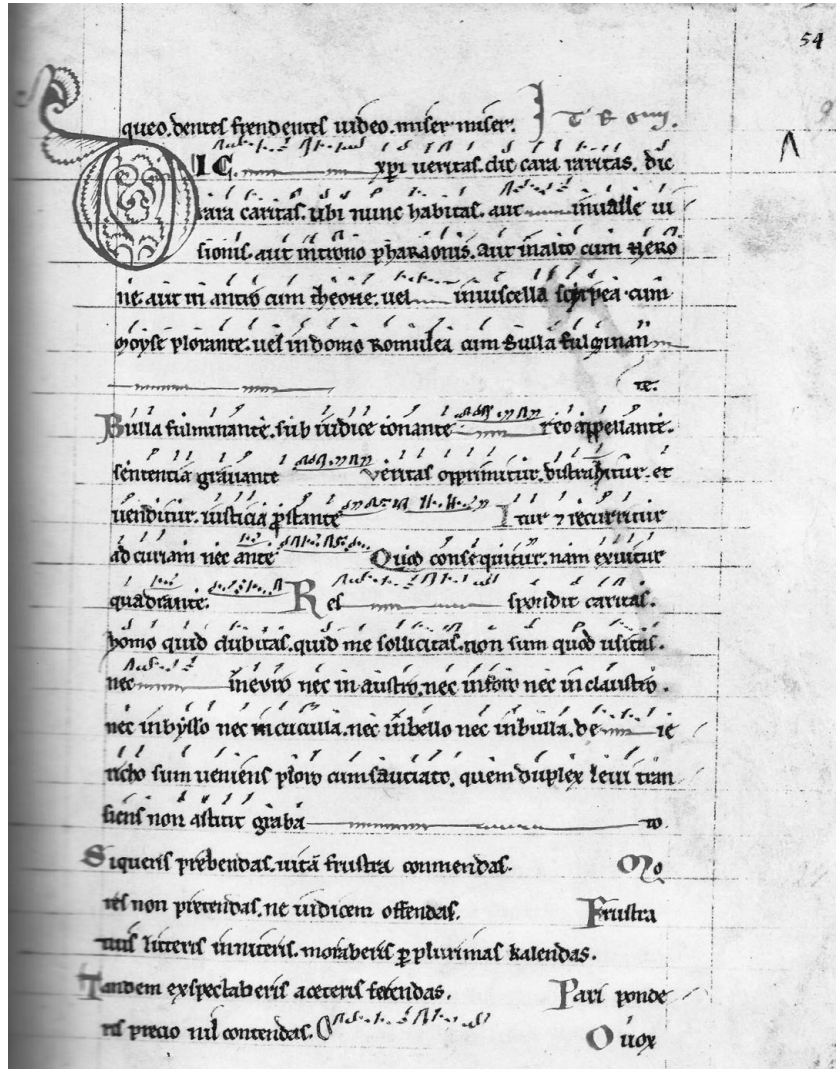 54
queo. dentes frendentes uideo. miser miser.
DIC xpi ueritas. dic cara raritas. dic
rara caritas. ubi nunc habitas. aut inualle ui
sionis. aut introno pharaonis. aut inalto cum Nero
ne. aut in antro cum theone. uel inuiscella scirpea cum
Moyse plorante. uel indomo Romulea cum Bulla fulminan
te.
Bulla fulminante. sub iudice tonante reo appellante.
sententia grauante veritas opprimitur. distrahitur. et
uenditur. iusticia prstante Itur 7 recurritur
ad curiam nec ante Quid consequitur. nam exuitur
quadrante. Res pondit caritas.
homo quid dubitas. quid me sollicitas. non sum quod usitas.
nec ineuro nec in austro. nec inforo nec in claustro.
nec inbysso nec incuculla. nec inbello nec inbulla. de ie
richo sum ueniens ploro cumsauciato. quem duplex leui tran
siens non astitit graba to.
Siqueris prebendas. uitã frustra commendas. Mo
res non pretendas. ne iudicem offendas. Frustra
tuis litteris inniteris. moraberis p plurimas kalendas.
Tandem exspectaberis aceteris ferendas. Pari ponde
ris precio nil contendas. O uox